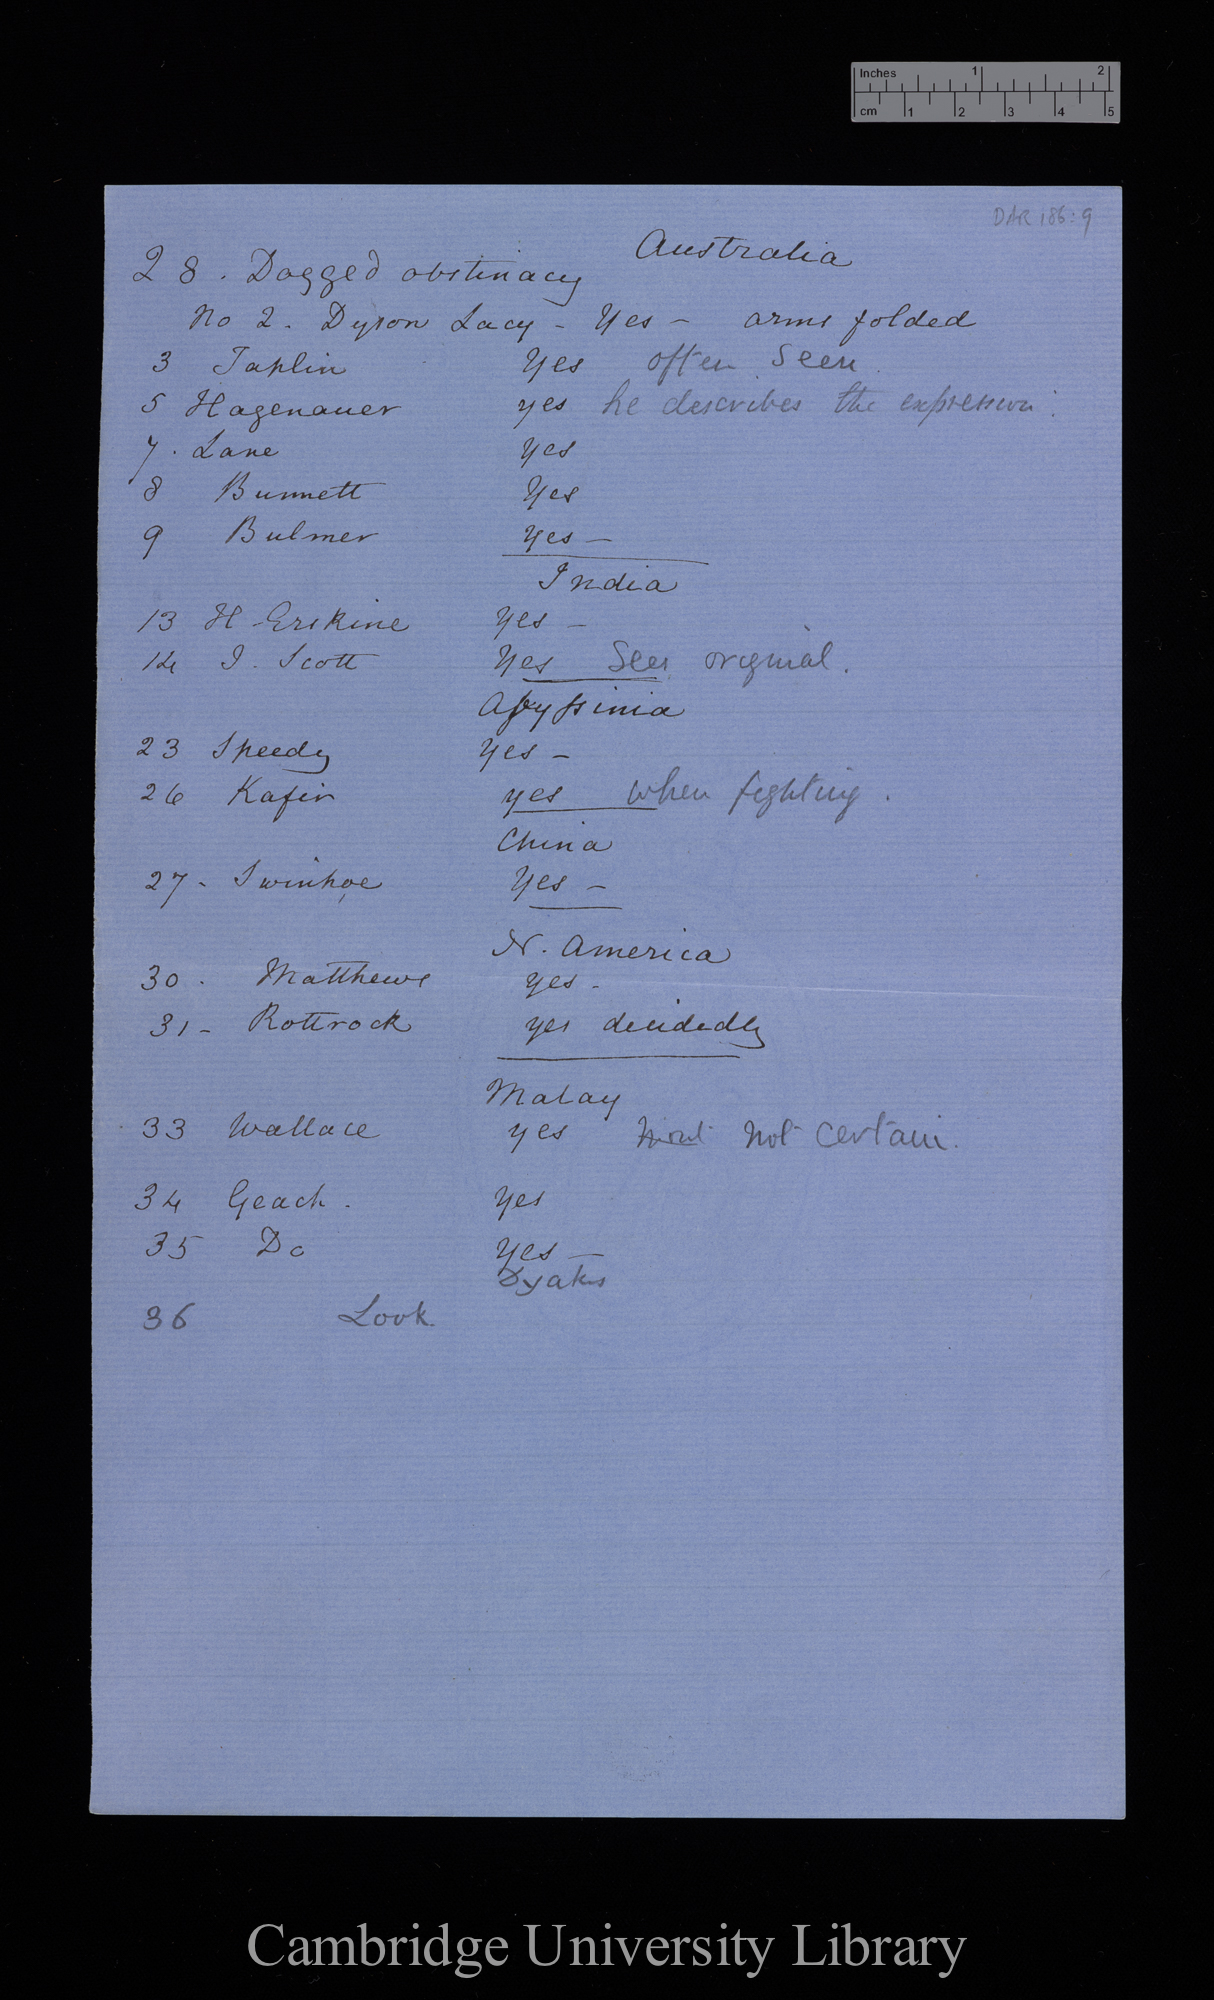 Inches 1 2
cm 1 2 3 4 5
DAR 186:9
Australia
28. Dogged obstinacy
No 2. Dyson Lacy - Yes - arms folded
3 Taplin Yes often seen.
5 Hagenauer yes he describes the expression.
7. Lane yes
8 Bunnett Yes
9 Bulmer yes -
India
13 H Erskine Yes -
14 J. Scott Yes See original.
Abyssinia
23 Speedy Yes -
26 Kafir yes when fighting.
China
27 - Swinhoe Yes -
N. America
30. Matthews yes -
31 - Rottrock yes decidedly
Malay
33 Wallace yes not certain.
34 Geach. Yes
35 Do Yes -
Dyaks
36 Look.
Cambridge University Library